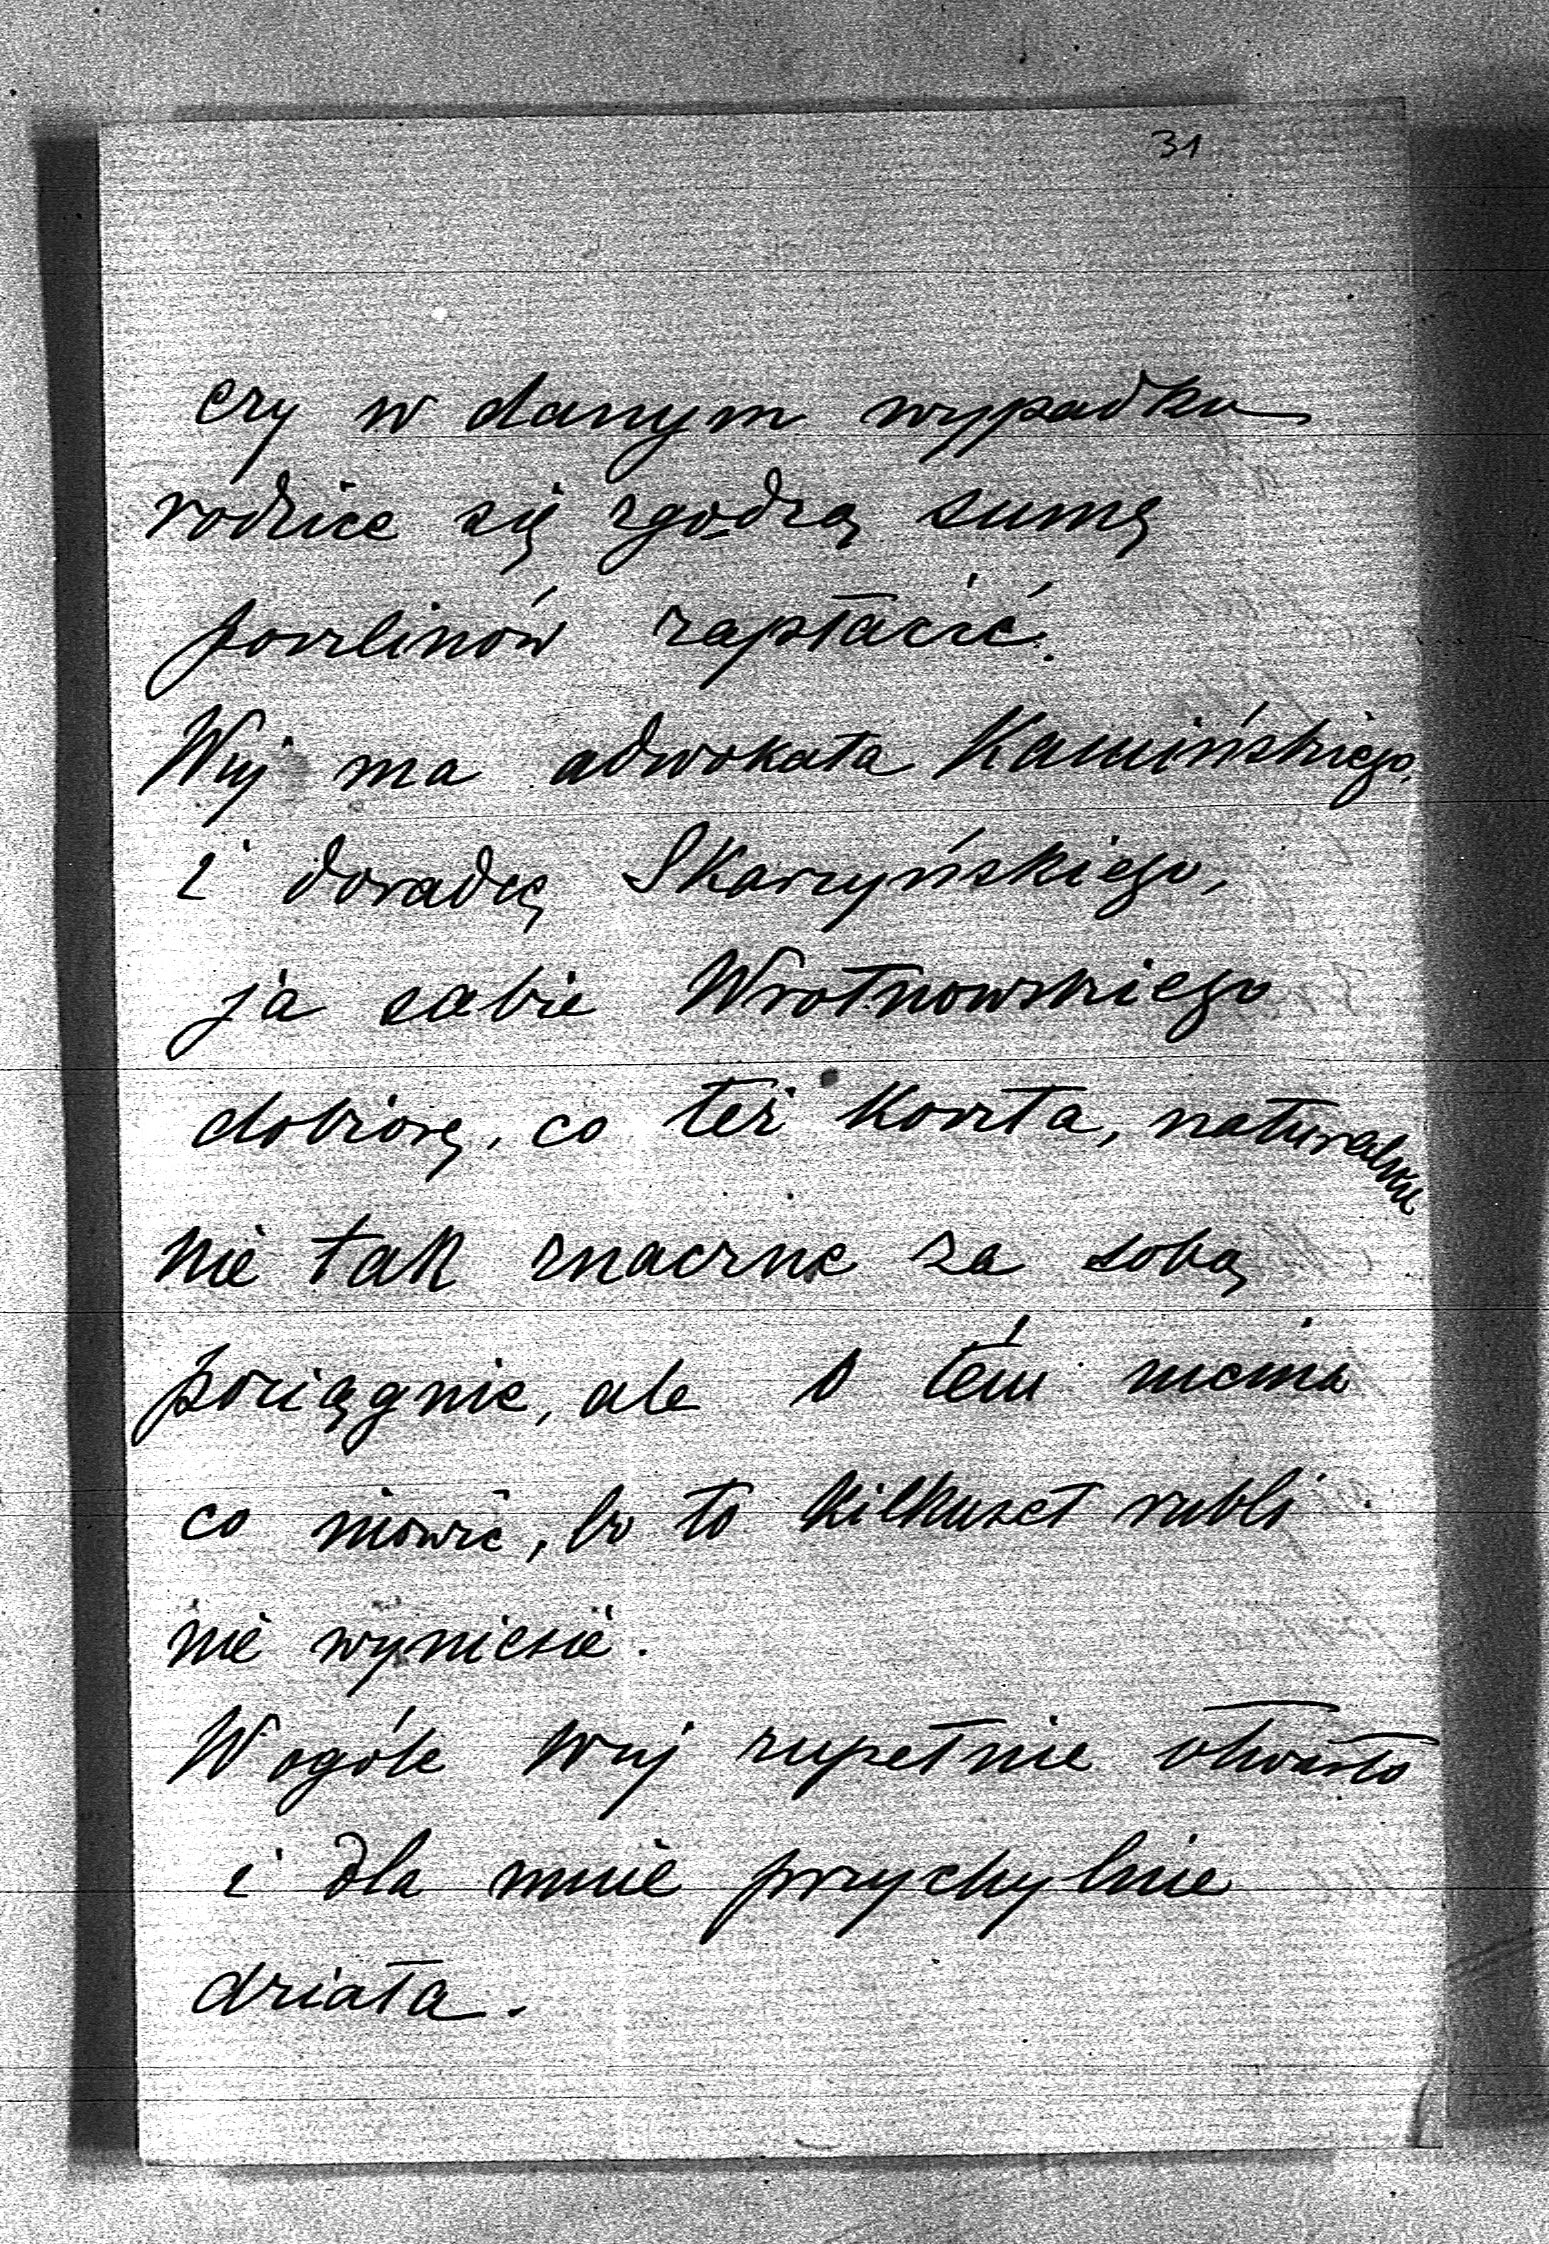 31
czy w danym wypadku
rodzice się zgodzą sumę
powlinów zapłacić.
Wuj ma adwokata Kamińskiego,
i doradcę Skarzyńskiego,
ja sobie Wrotnowskiego
dobiorę, co też koszta, naturalnie
nie tak znaczne za sobą
pociągnie, ale o tém niema
co mówić, bo to kilkuset rubli
nie wyniesie.
W ogóle wuj zupełnie otwarto
i dla mnie przychylnie
działa.